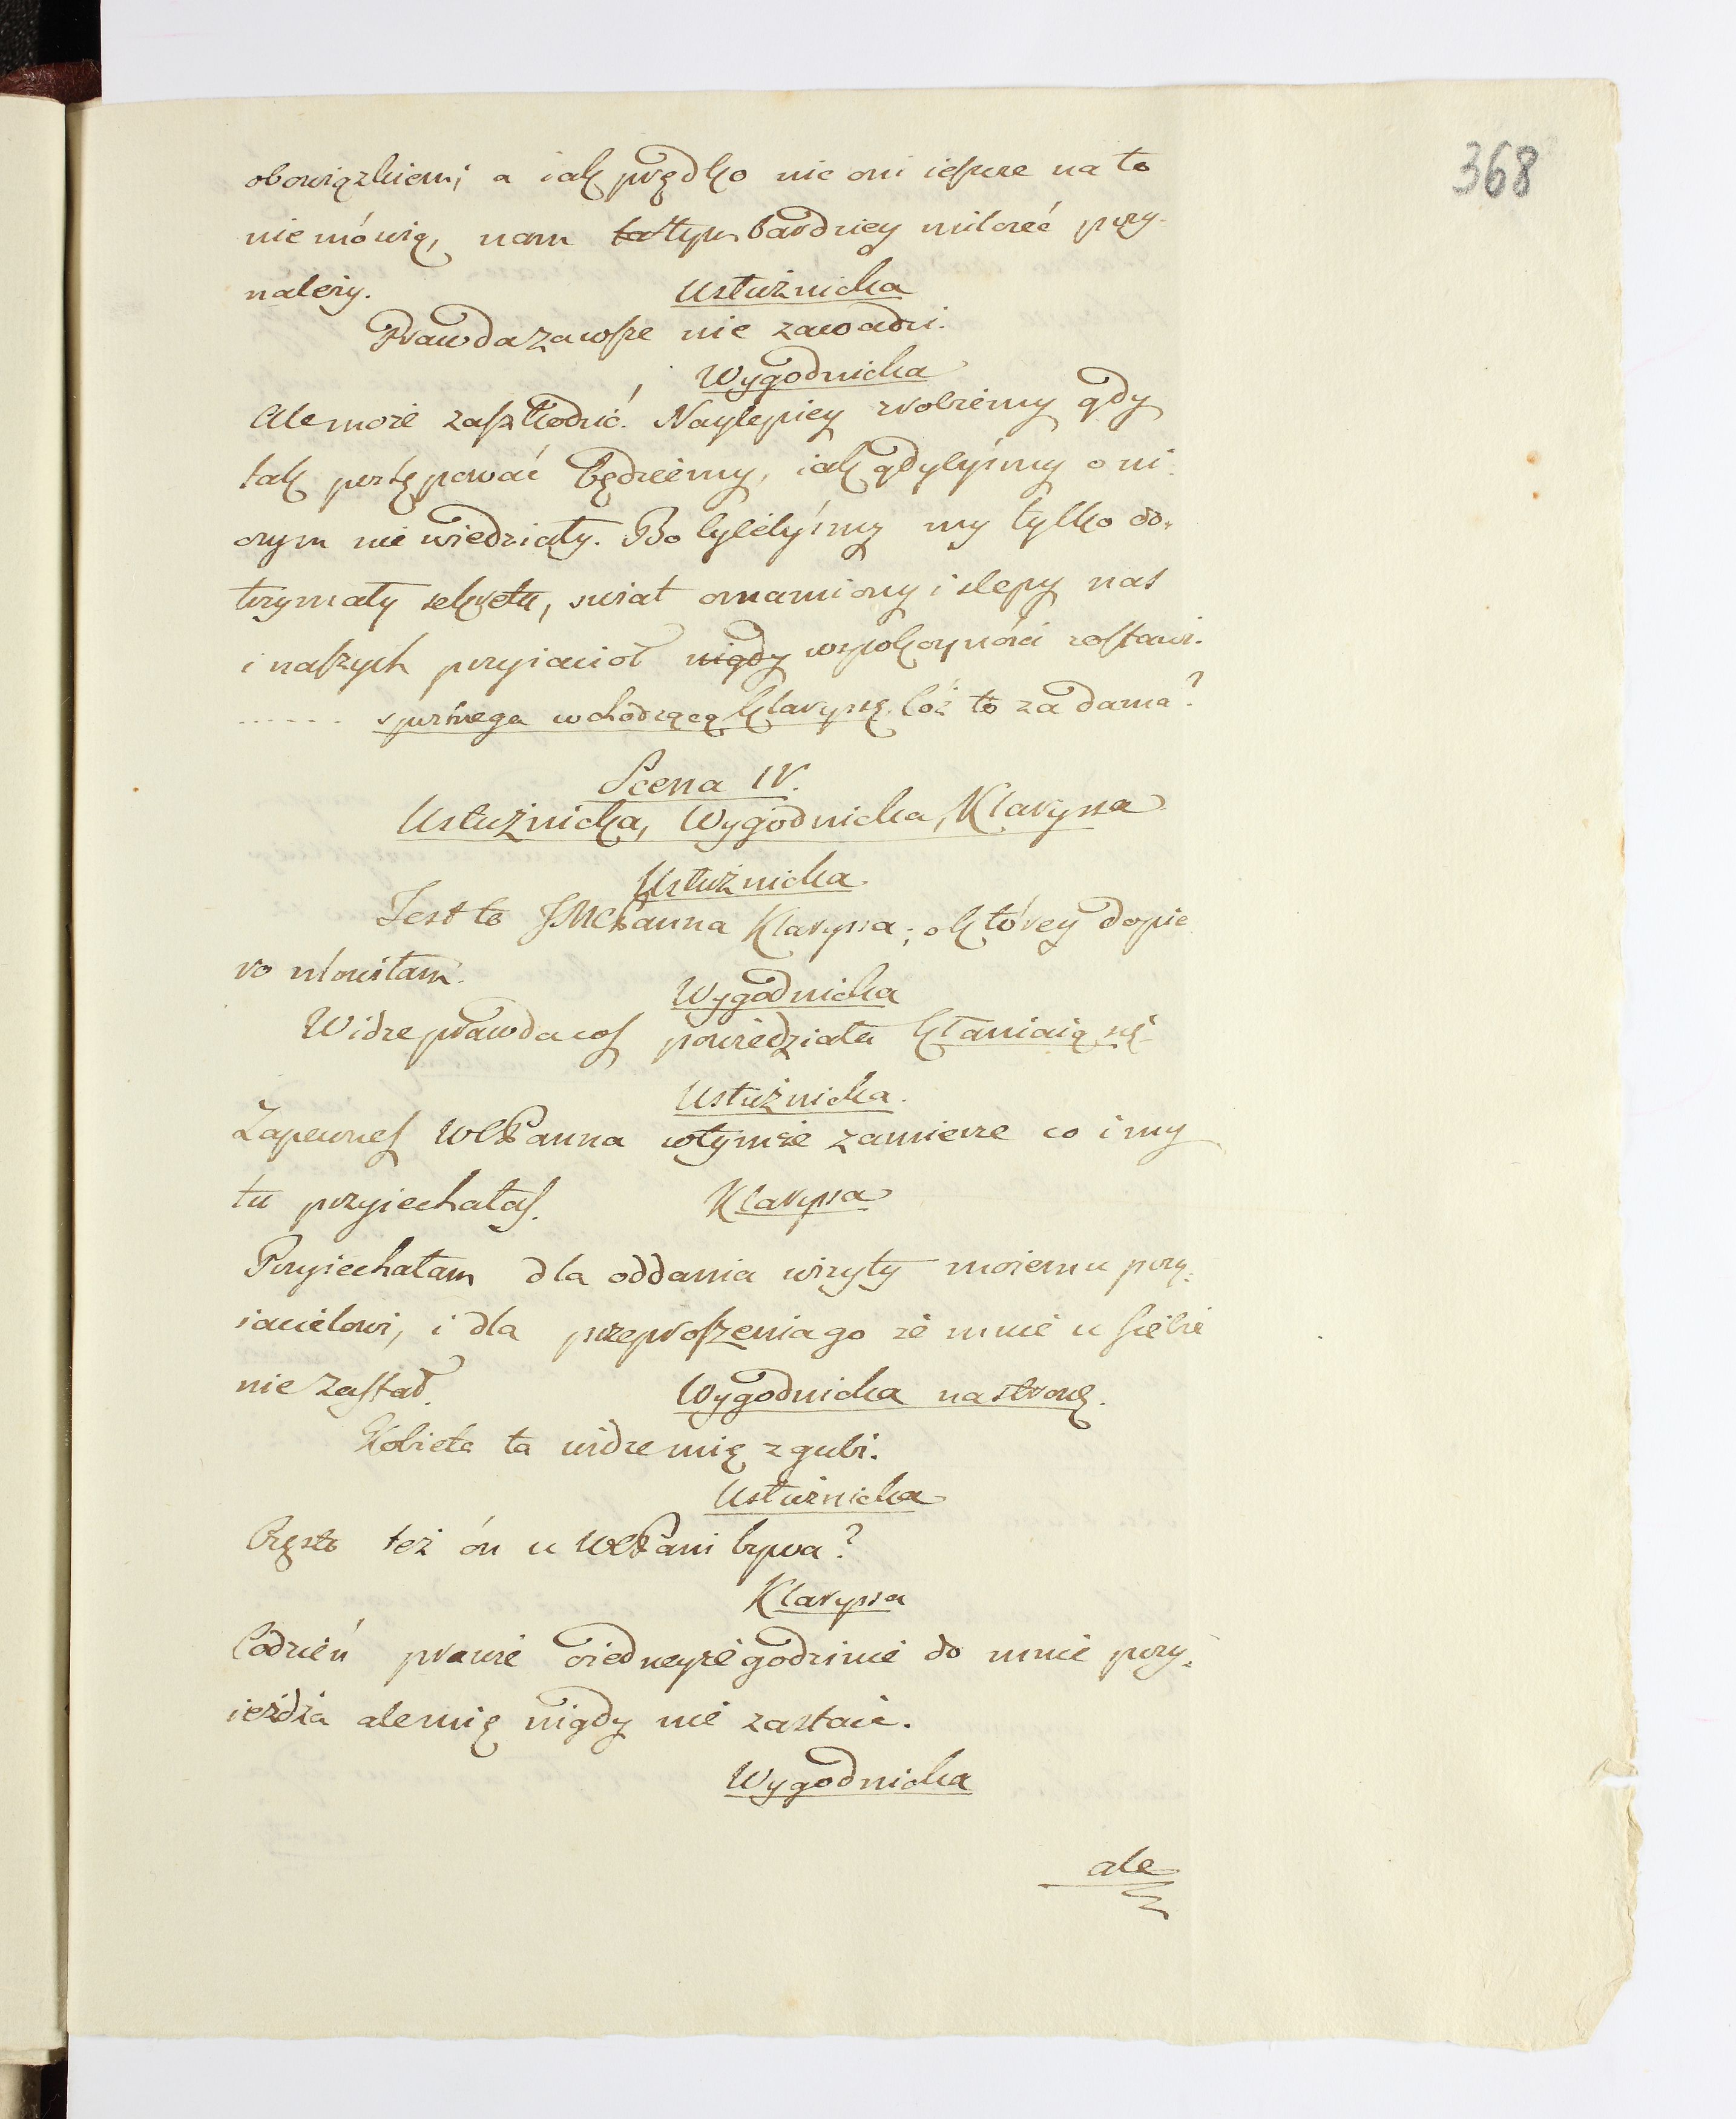 368
obowiązkiem; a iak prędko nic oni ieszcze na to
nie mówią, nam ta tym bardziey milczeć przy-
należy. Usłużnicka
Prawda zawsze nie zawadzi.
Wygodnicka
Ale może zaszkodzić! Naylepiey zrobiemy gdy
tak postępować będziemy, iak gdybyśmy o ni-
czym nie wiedziały. Bo bylébýsmy my tylko do-
trzymały sekretu, świat omamiony i slepy nas
i naszych przyiaciół nigdy w spokoyności zostawi.
...... spostrzega wchodzącą Klaryssę. Cóż to za dama?
Scena IV.
Usłużnicka, Wygodnicka, Klaryssa
Usłużnicka.
Jest to JMCPanna Klaryssa; o którey dopie
ro mówiłam.
Wygodnicka
Widzę prawdę coś powiedziała kłaniaią się
Usłużnicka.
Zapewneś WCPanna w tymże zamierze co i my
tu przyiechałaś. Klaryssa
Przyiechałam dla oddania wizyty moiemu przy-
iacielowi, i dla przeproszenia go że mnie u siebie
nie zastał. Wygodnicka na stronę.
Kobieta ta widzę mię zgubi.
Usłużnicka
Często też ón u WCPani bywa?
Klaryssa
Codzień prawie o iedneyże godzinie do mnie przy-
ieżdża ale mię nigdy nie zastaie.
Wygodnicka
ale